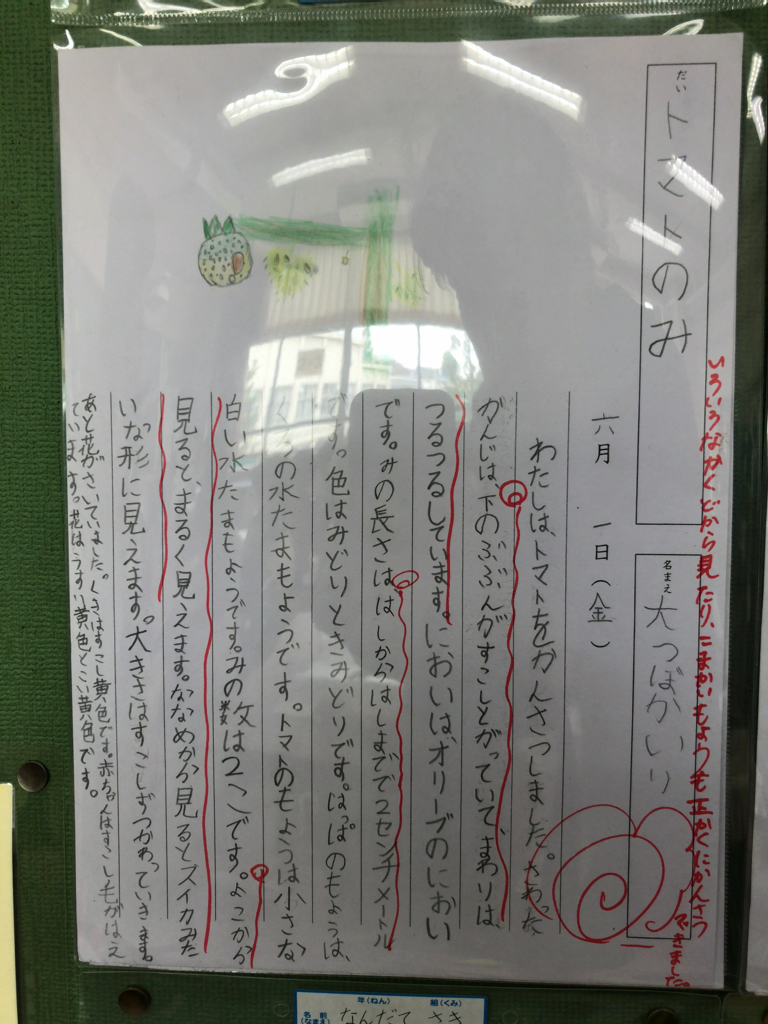 いろいろなかくどから見たり、こまかいもようも正かくにかんさつ
できました。
だい
トマトのみ
名まえ
大つぼかいり
六月 一日(金)
わたしは、トマトをかんさつしました。さわった
かんじは、下のぶぶんがすこしとがっていて、まわりは、
つるつるしています。においは、オリーブのにおい
です。みの長さは、はしからはしまでで2センチメートル
です。色はみどりときみどりです。はっぱのもようは、
くろの水たまもようです。トマトのもようは小さな
白い水たまもようです。みの数は2こです。よこから
見ると、まるく見えます。ななめから見るとスイカみた
いな形に見えます。大きさはすこしずつかわっていきます。
あと花がさいていました。くきはすこし黄色です。赤ちゃんはすこし毛がはえ
ています。花はうすい黄色とこい黄色です。
年(ねん) 組(くみ)
名前
(なまえ)
なんだて さき